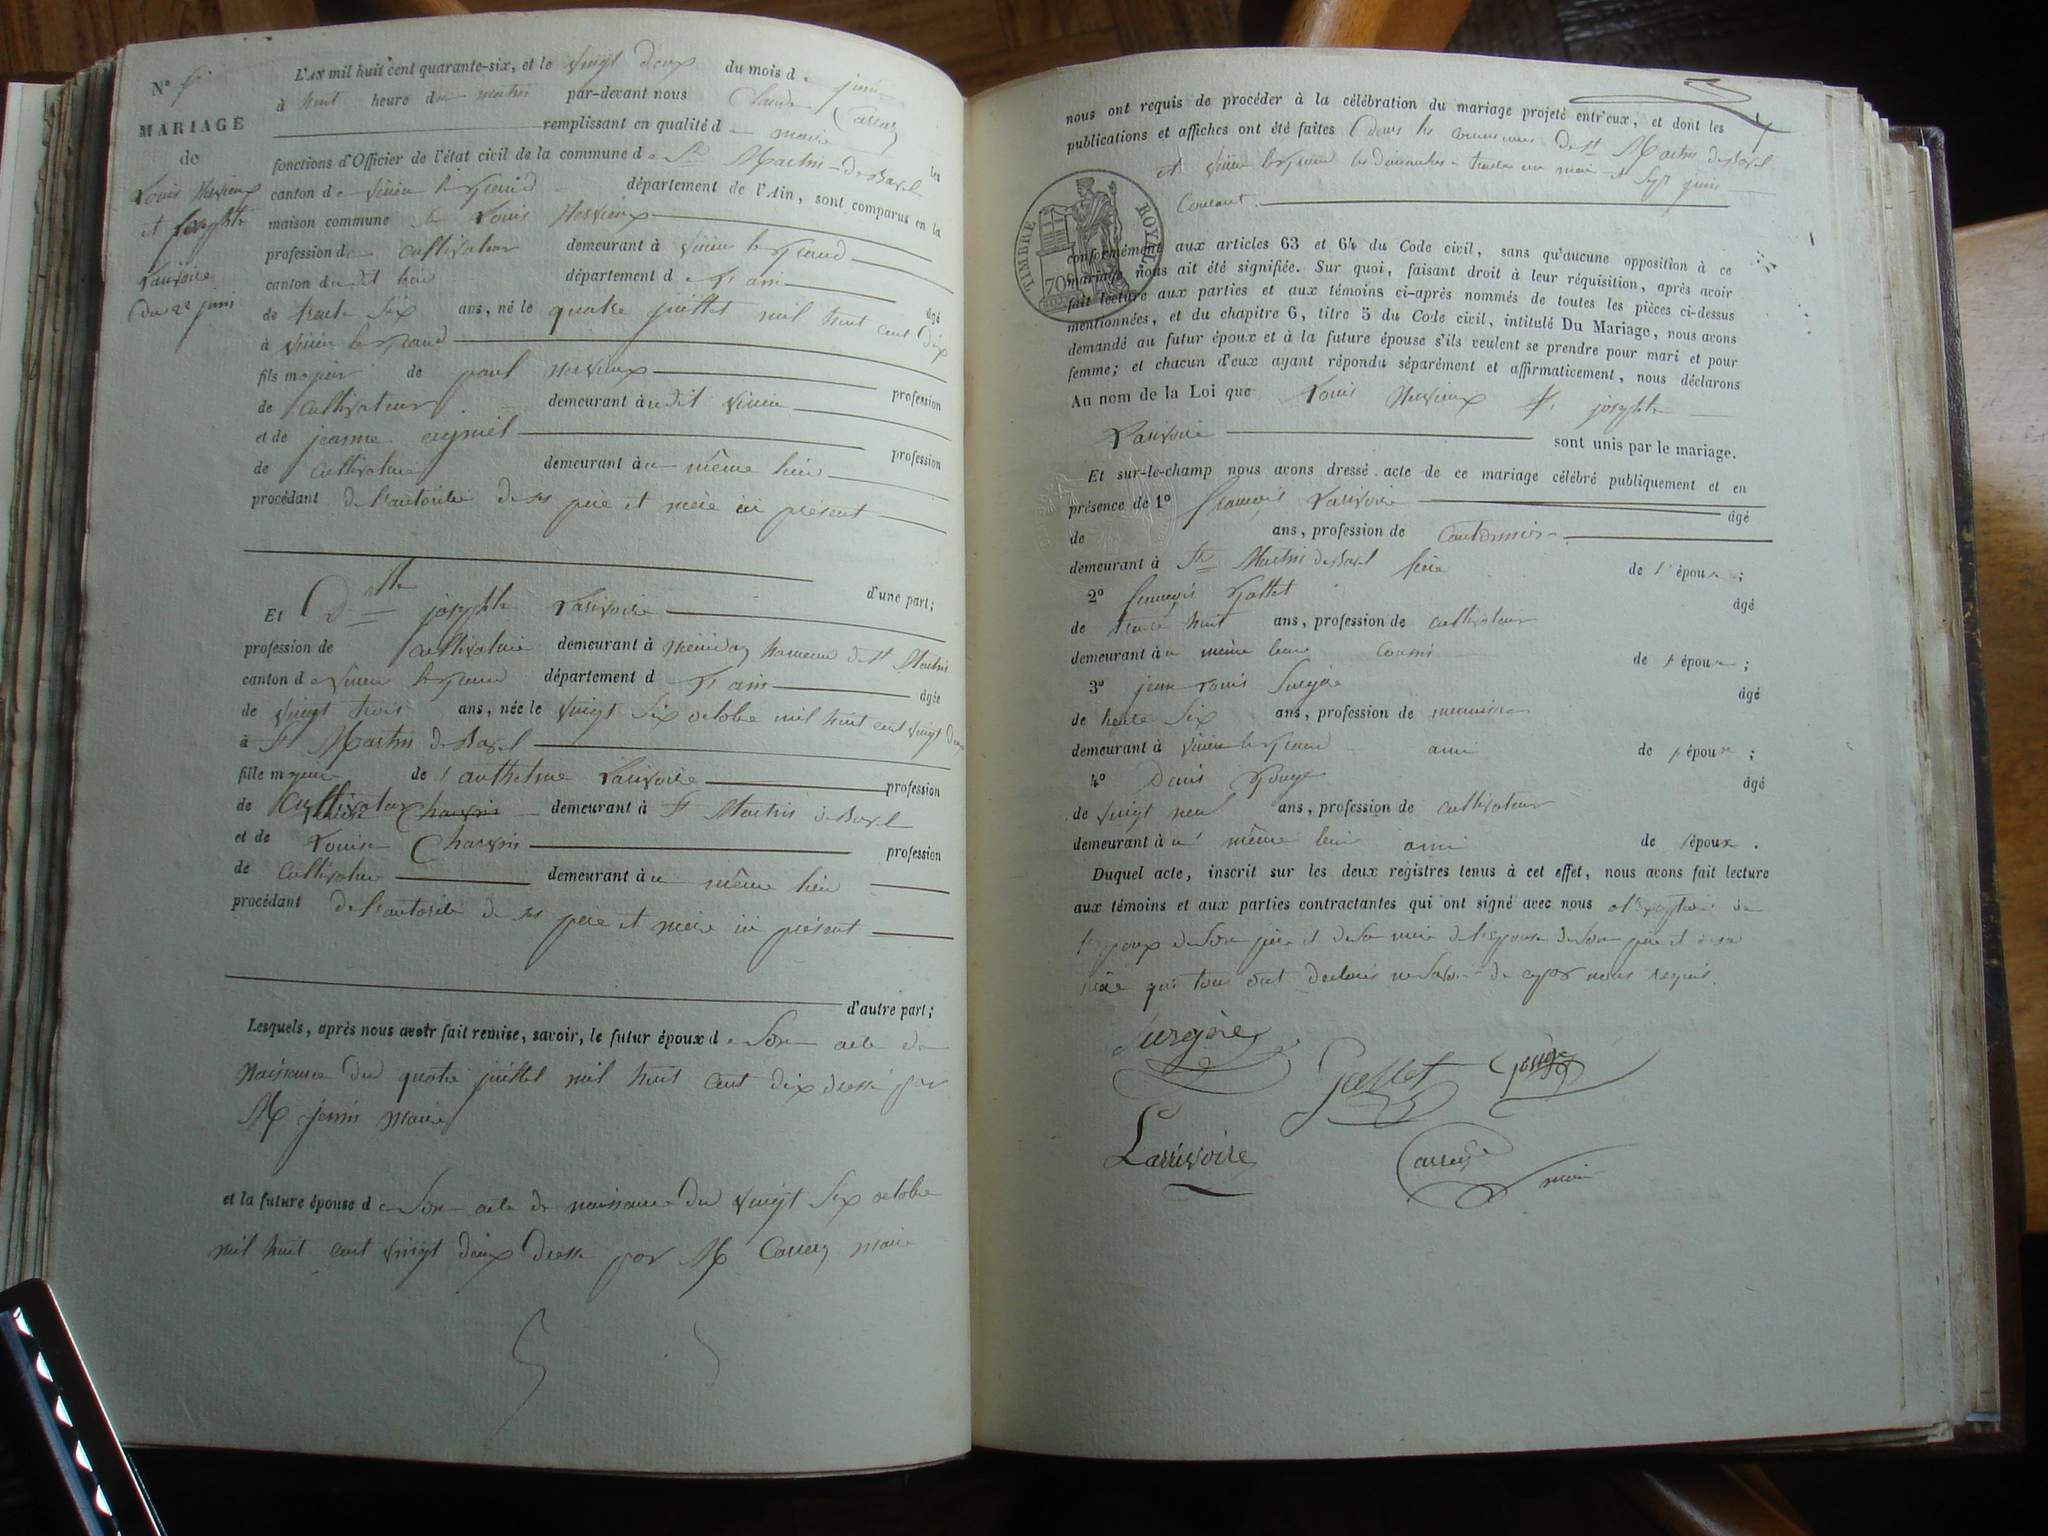 N°
MARIAGE
de
Louis Hervieux
et Josephte
Larivoire
Du 22 juin
L'AN mil huit cent quarante-six, et le vingt deux du mois de juin
à huit heure du matin par-devant nous Claude Carraz
remplissant en qualité de maire les
fonctions d'Officier de l'état civil de la commune de St Martin de Bavel
canton de virieu le grand département de l'Ain, sont comparus en la
maison commune Louis Hervieux
profession de cultivateur demeurant à virieu le grand
canton dudit lieu département de l'ain âgé
de trente six ans, né le quatre juillet mil huit cent dix
à virieu le grand
fils majeur de paul hervieux profession
de cultivateur demeurant audit virieu
et de jeanne profession
de cultivatrice demeurant au même lieu
procédant de l'autorité de ses père et mère ici présent
d'une part;
Et Dlle josephte Larivoire
profession de cultivatrice demeurant à hameau de st Martin
canton de virieu le grand département de l'ain âgée
de vingt trois ans, née le vingt six octobre mil huit cent vingt deux
à St Martin de Bavel
fille majeure de anthelme Larivoire profession
de cultivateur demeurant à St Martin de Bavel
et de Louise Charvin profession
de cultivatrice demeurant au même lieu
procédant de l'autorité de ses père et mère ici présent
d'autre part;
Lesquels, après nous avoir fait remise, savoir, le futur époux de son acte de
naissance du quatre juillet mil huit cent dix dressé par
M janin maire
et la future épouse de son acte de naissance du vingt six octobre
mil huit cent vingt deux dressé par M Carraz maire
nous ont requis de procéder à la célébration du mariage projeté entr'eux, et dont les
publications et affiches ont été faites dans les communes de st Martin de Bavel
et virieu le grand les dimanches trente un mai et sept juin
courant.
TIMBRE ROYAL
70c
conformément aux articles 63 et 64 du Code civil, sans qu'aucune opposition à ce
mariage nous ait été signifiée. Sur quoi, faisant droit à leur réquisition, après avoir
fait lecture aux parties et aux témoins ci-après nommés de toutes les pièces ci-dessus
mentionnées, et du chapitre 6, titre 5 du Code civil, intitulé Du Mariage, nous avons
demandé au futur époux et à la future épouse s'ils veulent se prendre pour mari et pour
femme; et chacun d'eux ayant répondu séparément et affirmativement, nous déclarons
Au nom de la Loi que Louis Hervieux et josephte
Larivoire sont unis par le mariage.
Et sur-le-champ nous avons dressé acte de ce mariage célébré publiquement et en
présence de 1° françois Larivoire âgé
de ans, profession de cantonnier
demeurant à St Martin de Bavel frère de l'épouse;
2° françois Gallet âgé
de trente huit ans, profession de cultivateur
demeurant au même lieu cousin de l'épouse;
3° jean Louis Surgère âgé
de trente six ans, profession de menuisier
demeurant à virieu le grand ami de l'époux;
4° Denis Gouge âgé
de vingt neuf ans, profession de cultivateur
demeurant au même lieu ami de l'époux.
Duquel acte, inscrit sur les deux registres tenus à cet effet, nous avons fait lecture
aux témoins et aux parties contractantes qui ont signé avec nous à l'exeption de
l'époux de son père et de sa mère de l'épouse de son père et de sa
mère qui tous ont déclaré ne savoir de ce par nous requis.
Surgère
Gallet
gouge
Larivoire
Carraz
maire